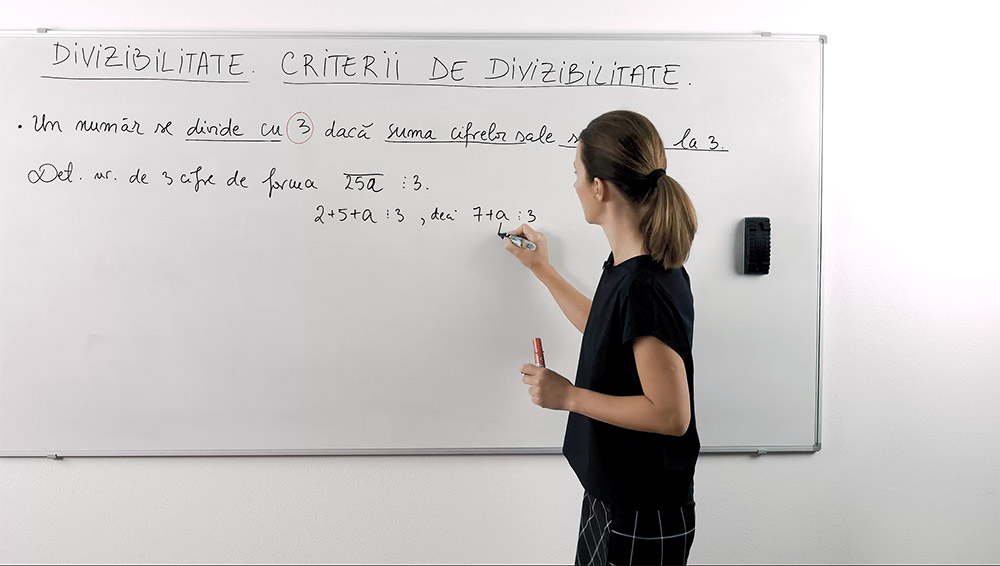 DIVIZIBILITATE. CRITERII DE DIVIZIBILITATE.
• Un număr se divide cu 3 dacă suma cifrelor sale la 3.
Det. nr. de 3 cifre de forma 25a ⋮ 3.
2+5+a ⋮ 3 , deci 7+a ⋮ 3